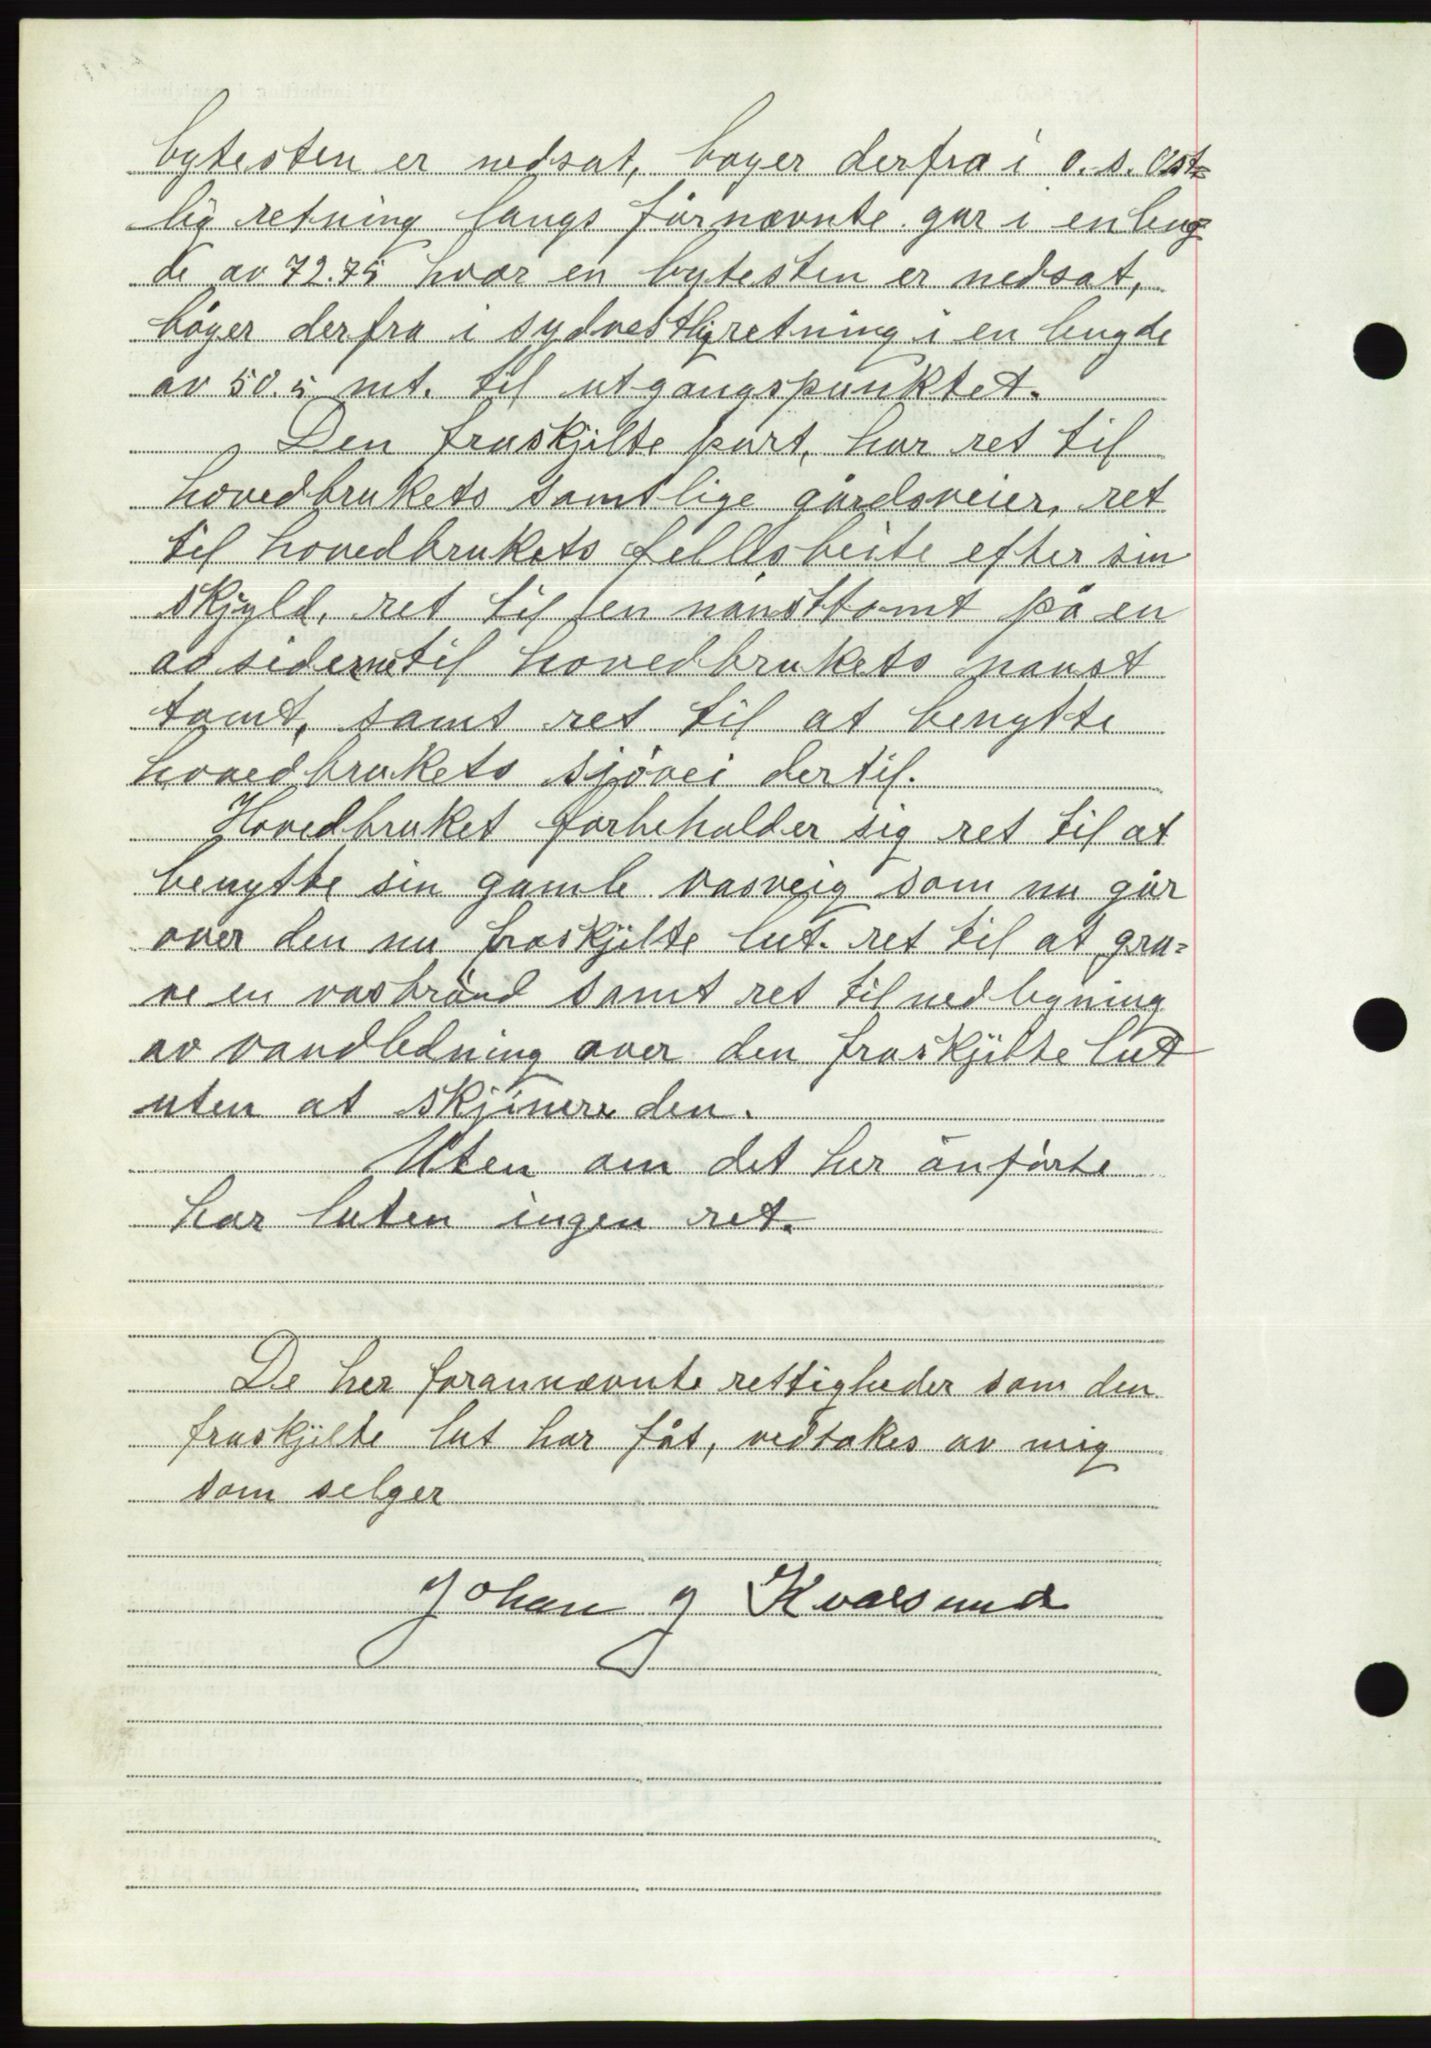 bytesten er nedsat, bøyer derfra i o. s. Øst=
lig retning langs førnævnte gar i en leng
de av 72.75 hvor en bytesten er nedsat,
bøyer derfra i sydvestlig retning i en lengde
av 50.5 mt. til utgangspunktet.
Den fraskjilte part, har ret til
hovedbrukets samtlige gårdsveier, ret
til hovedbrukets fellesbeite efter sin
skjyld, ret til en nausttomt på en
av siderne til hovedbrukets naust
tomt, samt ret til at benytte
hovedbrukets sjøvei dertil.
Hovedbruket forbeholder sig ret til at
benytte sin gamle vasveig som nu går
over den nu fraskjilte lut. ret til at gra=
ve en vasbrønd samt ret til nedlegning
av vandledning over den fraskjilte lut
uten at skjimere den.
Uten om det her anførte
har luten ingen ret.
De her forannævnte rettigheder som den
fraskjilte lut har fåt, vedtakes av mig
som selger
Johan J Kvalsund